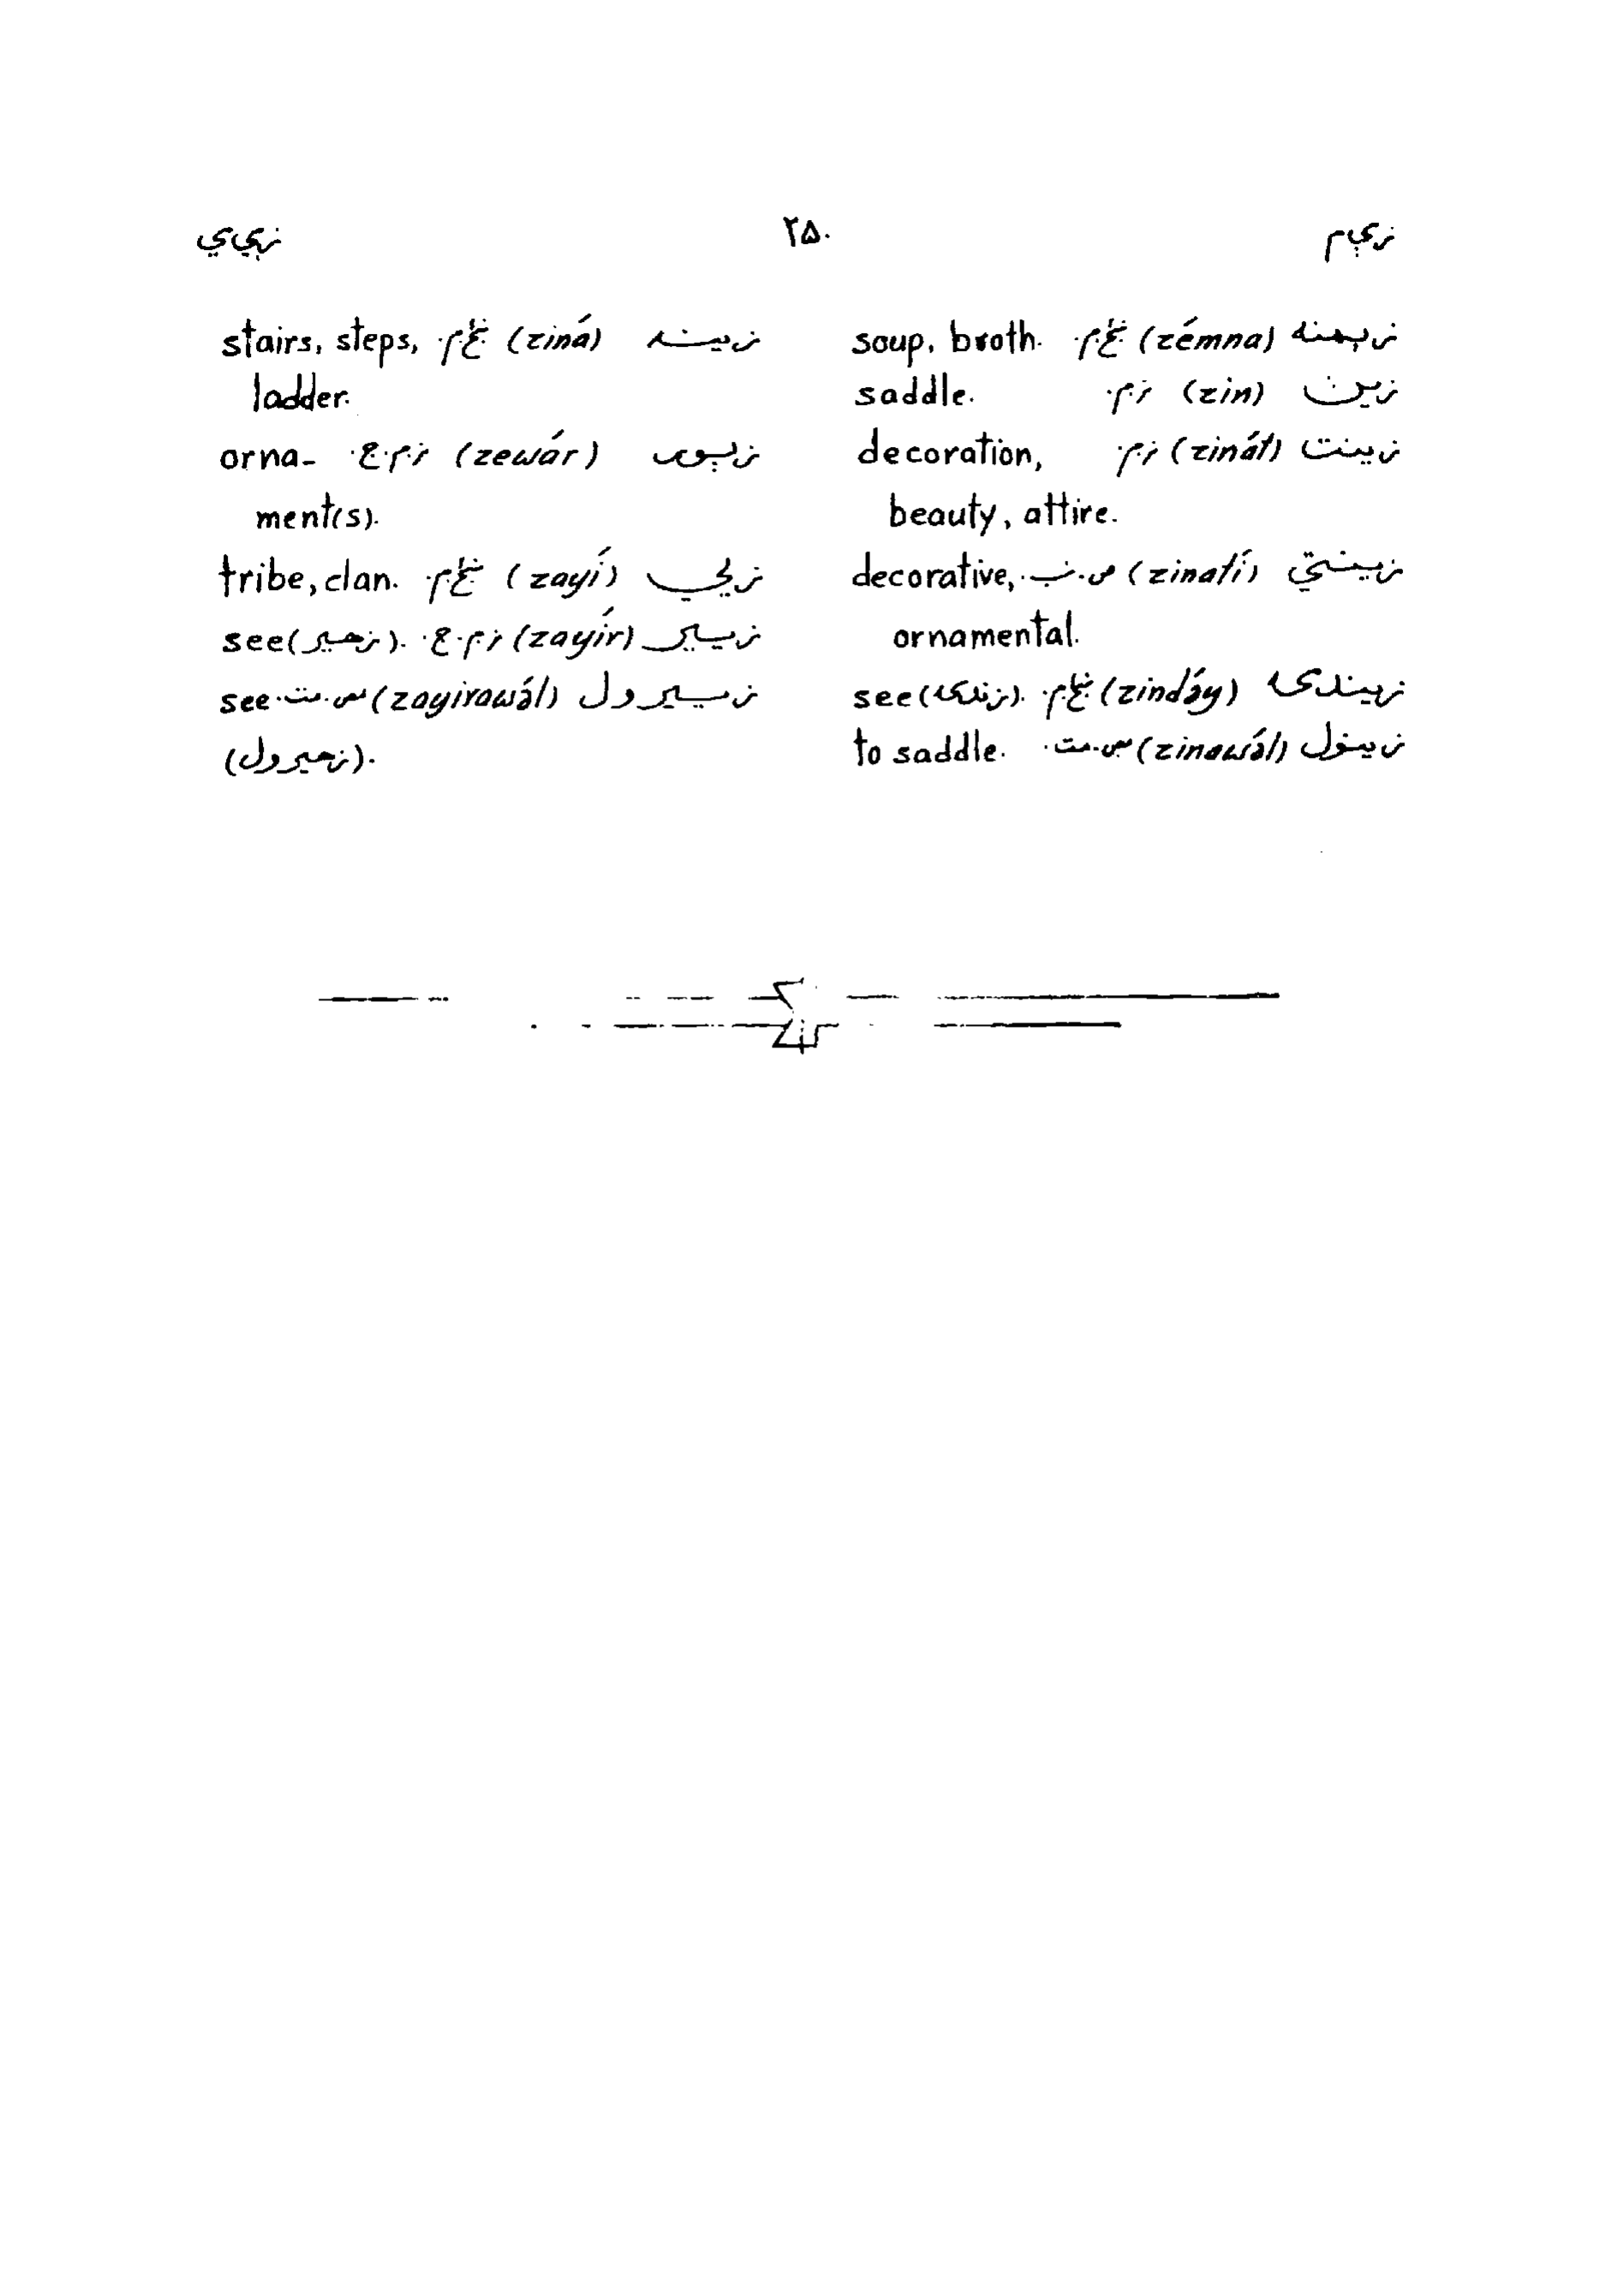 زېم ۲۵۰ زېيي
زېمنه (zémna) ښځ.م. soup, broth.
زين (zin) نر.م. saddle.
زينت (zinát) نر.م. decoration,
beauty, attire.
زينتي (zinatí) ص.نب. decorative,
ornamental.
زيندۍ (zində́y) ښځ.م. see (زندۍ).
زينول (zinawə́l) مص.مت. to saddle.
زينه (ziná) ښځ.م. stairs, steps,
ladder.
زېور (zewár) نر.م.ج. orna-
ment(s).
(zayí) ښځ.م. tribe, clan.
زيير (zayír) نر.م.ج. see (زهير).
زييرول (zayirawə́l) مص.مت. see
(زهيرول).